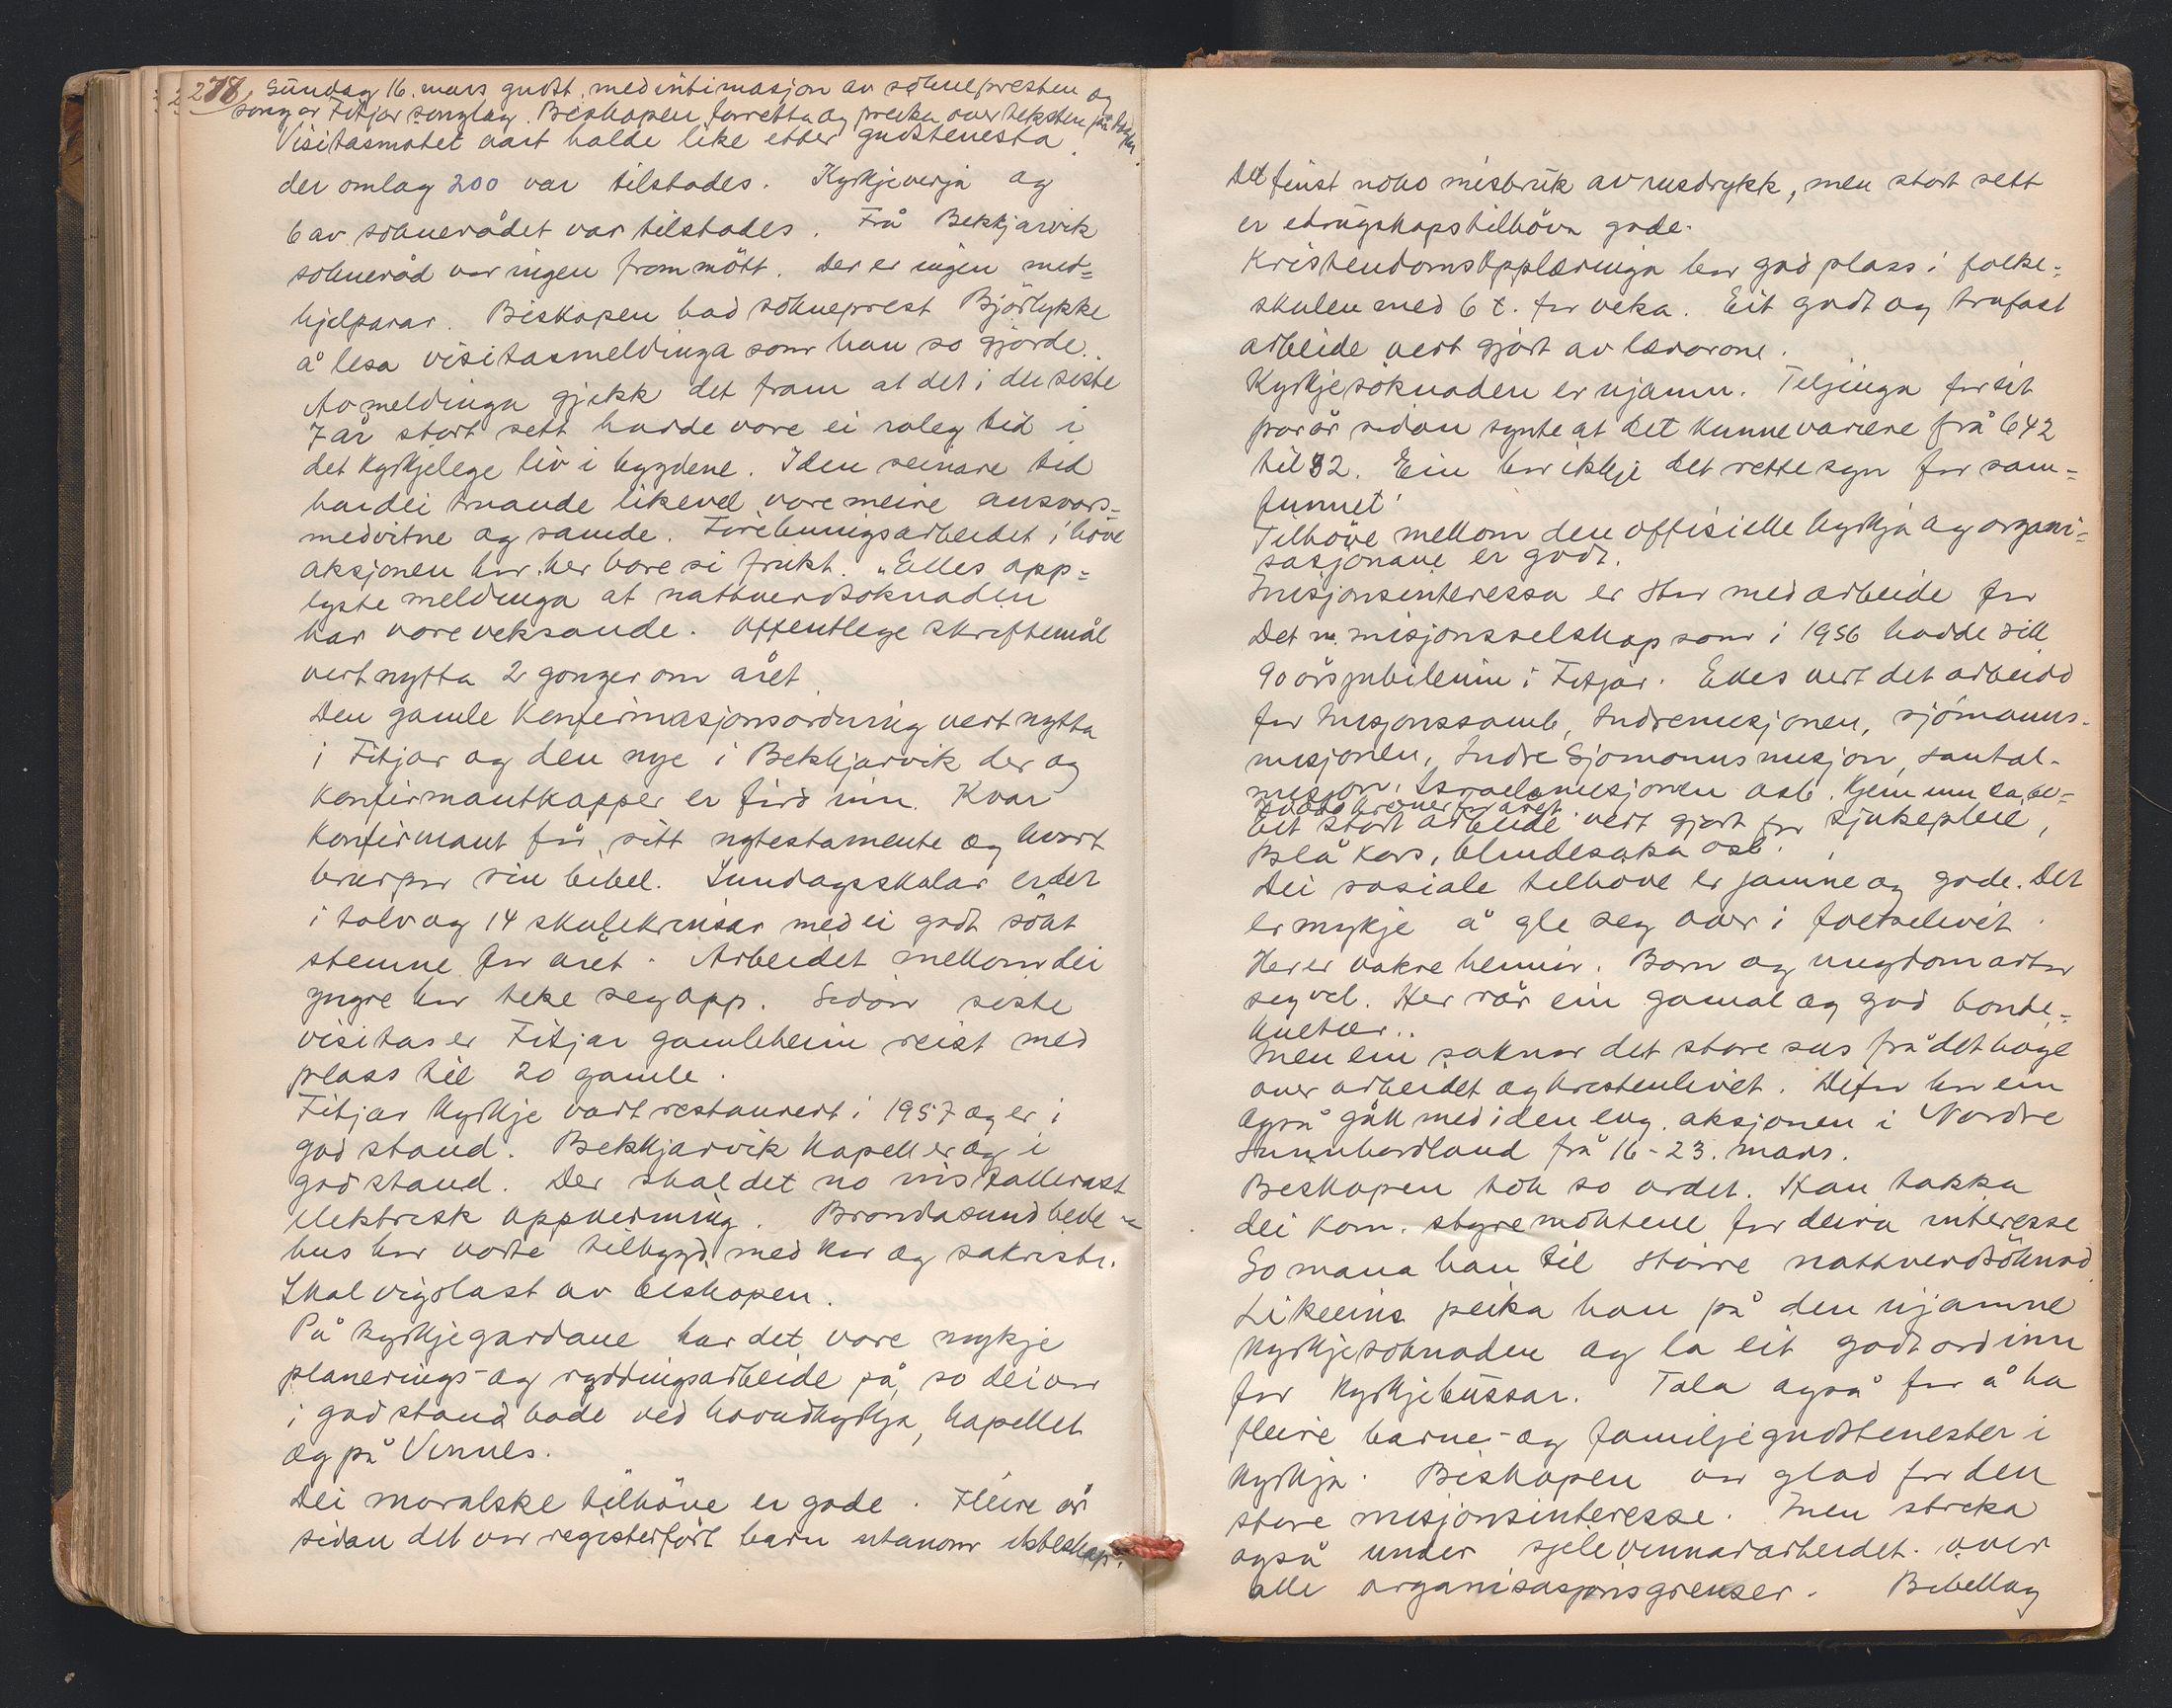 278
Sundag 16. mars gudst. med intimasjon av soknepresten og
song av Fitjar songlag. Biskopen forretta og preika over teksten på
Visitasmøtet vart halde like etter gudstenesta
der omlag 200 var tilstades. Kyrkjeverja og
6 av soknerådet var tilstades. Frå Bekkjarvik
sokneråd var ingen frammött. Der er ingen med=
hjelparar. Biskopen bad sokneprest Björlykke
å lesa visitasmeldinga som han so gjorde.
Av meldinga gjekk det fram at det i dei siste
7 år stort sett hadde vore ei roleg tid i
det kyrkjelege liv i bygdene. I den seinare tid
har dei truande likevel vore meire ansvars=
medvitne og samde. Förebuingsarbeidet i höve
aksjonen har her bore si frukt. "Elles opp=
lyste meldinga at nattverdsøknaden
har vore veksande. Offentlege skriftemål
vert nytta 2 gonger om året.
Den gamle konfirmasjonsordning vert nytta
i Fitjar og den nye i Bekkjarvik der og
konfirmantkapper er förd inn. Kvar
konfirmant får sitt nytestamente og kvart
brurpar sin bibel. Sundagsskular er der
i tolv og 14 skulekrinsar med ei godt sökt
stemne for året. Arbeidet mellom dei
yngre har teke seg opp. Sidan siste
visitas er Fitjar gamleheim reist med
plass til 20 gamle.
Fitjar kyrkje vart restaurert i 1957 og er i
god stand. Bekkjarvik kapell er og i
god stand. Der skal det no installerast
elektrisk oppvarming. Brandasund bede-
hus har vorte tilbygd med kor og sakristi.
Skal vigslast av biskopen.
På kyrkjegardane har det vore mykje
planerings- og ryddingsarbeide på, so dei var
i god stand både ved hovudkyrkja, kapellet
og på Vinnes.
Dei moralske tilhöve er gode. Fleire år
sidan det var registerfört barn utanom ekteskap.
Det finst noko misbruk av rusdrykk, men stort sett
er edrugskapstilhöva gode.
Kristendomsopplæringa har god plass i folke=
skulen med 6 t. for veka. Eit godt og trufast
arbeide vert gjort av lærarane.
Kyrkjesöknaden er ujamn. Teljinga for eit
par år sidan synte at det kunne variere frå 642
til 32. Ein har ikkje det rette syn for sam=
funnet!
Tilhöve mellom den offisielle kyrkja og organi=
sasjonane er godt.
Misjonsinteressa er stor med arbeide for
Det n. misjonsselskap som i 1956 hadde sitt
90 årsjubileum i Fitjar. Elles vert det arbeidd
for Misjonssamb., Indremisjonen, sjömanns-
misjonen, Indre Sjömannsmisjon, Santal-
misjon, Israelsmisjonen osb. Kjem inn
kroner for året.
Eit stort arbeide vert gjort for sjukepleie,
Blå Kors, blindesaka osb.
Dei sosiale tilhöve er jamne og gode. Det
er mykje å gle seg over i folkelivet.
Her er vakre heimar. Born og ungdom artar
seg vel. Her rår ein gamal og god bonde=
kultur..
Men ein saknar det store sus frå det høge
over arbeidet og kristenlivet. Difor har ein
også gått med i den evg. aksjonen i Nordre
Sunnhordland frå 16-23. mars.
Biskopen tok so ordet. Han takka
dei kom. styremaktene for deira interesse
So mana han til större nattverdsöknad.
Likeeins peika han på den ujamne
kyrkjesöknaden og la eit godt ord inn
for kyrkjebussar. Tala også for å ha
fleire barne- og familjegudstenester i
kyrkja. Biskopen var glad for den
store misjonsinteresse. Men streka
også under sjelevinnararbeidet over
alle organisasjonsgrenser. Bibellag